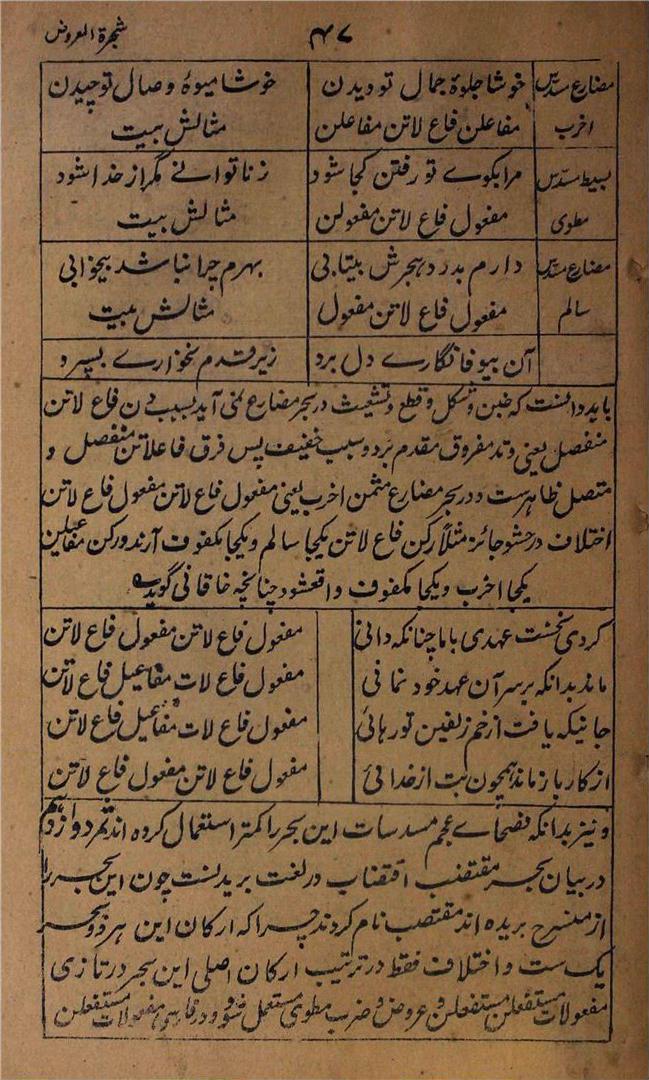 شجرة العروض
۴۷
مضارع مسدس خوشا جلوۂ جمال تو دیدن خوشا میوۂ وصال تو چیدن
اخرب مفاعلن فاع لاتن مفاعلن مثالش بیت
بسیط مسدس مرا بکوے تو رفتن کجا شود ز ناتوانے مگر از خدا شود
مطوی مفعول فاع لاتن مفعولن مثالش بیت
مضارع مسدس دارم بدرد ہجرش بیتابی بہرم چرا نباشد بیخوابی
سالم مفعول فاع لاتن مفعول مثالش بیت
آن بیوفا نگارے دل برد زیر قدم بخوارے بسپرد
باید دانست کہ خبن و شکل و قطع و تشعیث در بحر مضارع نمی آید بسبب بودن فاع لاتن
منفصل یعنی وتد مفروق مقدم بر دو سبب خفیف پس فرق فاعلاتن منفصل و
متصل ظاہرست و در بحر مضارع مثمن اخرب یعنی مفعول فاع لاتن مفعول فاع لاتن
اختلاف در حشو جائز مثلاً رکن فاع لاتن یکجا سالم و یکجا مکفوف آرند و رکن مفاعیلن
یکجا اخرب و یکجا مکفوف واقع شود چنانچہ خاقانی گوید
کردی نخست عہدی با ما چنانکہ دانی مفعول فاع لاتن مفعول فاع لاتن
ماند بدانکہ بر سر آن عہد خود نمانی مفعول فاع لات مفاعیل فاع لاتن
جانیکہ یافت از خم زلفین تو رہائی مفعول فاع لات مفاعیل فاع لاتن
از کار باز ماند ہمچون بت از خدائی مفعول فاع لاتن مفعول فاع لاتن
و نیز بدانکہ فصحاے عجم مسدسات این بحر را کمتر استعمال کردہ اند ثمر دوازدہم
در بیان بحر مقتضب اقتضاب در لغت بریدنست چون این بحر را
از منسرح بریدہ اند مقتضب نام کردند چرا کہ ارکان این ہر دو بحر
یک ست و اختلاف فقط در ترتیب ارکان اصلی این بحر در تازی
مفعولات مستفعلن مستفعلن و عروض و ضرب مطوی مستعمل شود و در فارسی مفعولات مستفعلن